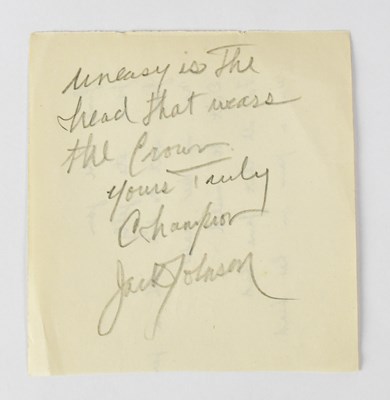 uneasy is The
head that wears
the Crown.
yours Truly
Champion
Jack Johnson